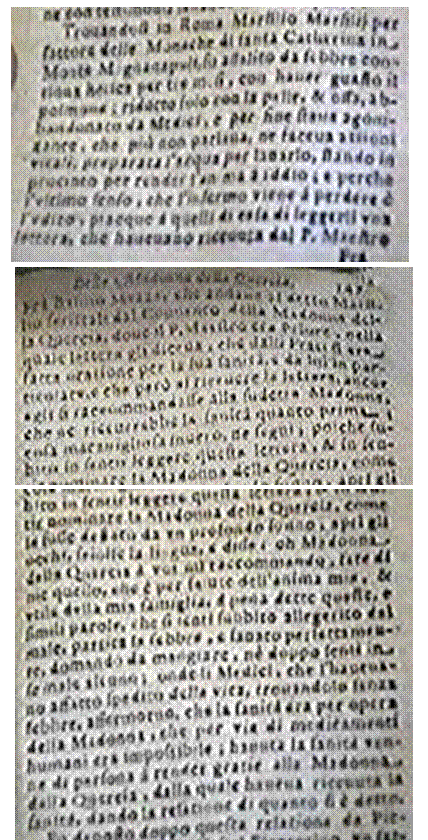 ne
Trovandosi in Roma Marsilio Marsilij per
fattore delle Monache di santa Catherina in
Monte M. assalito da febbre con-
tinua hetica per tre mesi, con hauer guasto il
polmone, ridotto solo con la pelle, & ossa, ab-
bandonato da Medici, e per fine staua agoni-
zante, che più non parlaua, ne faceua attioni
vitali, preparata l'acqua per lauarlo, stando in
procinto per render l'anima a Iddio, e perche
l'vltimo senso, che l'infermo viene à perdere è
l'vdito, piacque à quelli di casa di leggerli vna
lettera, che haueuano riceuuta dal P. Maestro
Fra
Della Madonna della Quercia.
al detto Marsi-
lio scrittali dal Conuento della Madonna del-
la Quercia, doue il P. Maestro era Priore, nella
quale lettera gli diceua, che dalli Frati era
fatta oratione per la sua sanità, e da lui in par-
ticolare, e che però si
egli si raccommandasse alla sudetta Madonna,
che ne riceuerebbe la sanità quanto prima
cosa marauigliosa inuero, ne seguì, poiche su-
bito in sentir leggere questa lettera, & in sen-
bito in sentir leggere questa lettera, & in sen-
tir nominare la Madonna della Quercia, come
se fusse destato da vn profondo sonno, aprì gli
occhi, sciolse la lingua, e disse, oh Madonna
della Quercia à voi mi raccommando, fate di
me quello, che è per salute dell'anima mia, &
vtile della mia famiglia, à pena dette queste, e
simili parole, che si sentì subbito allegerito dal
male, partita la febbre, e sanato perfettamen-
te, domandò da mangiare, nè doppo sentì
male alcuno, onde li Medici, che l'haueua-
no affatto spedito della vita, trouandolo senza
febbre, affermorno, che la sanità era per opera
della Madonna, che per via di medicamenti
humani era impossibile; hauuta la sanità ven-
ne di persona à render gratie alla Madonna
della Quercia, dalla quale haueua riceuuta la
sanità, dando la relatione di quanto si è detto.
doppo questa relatione da